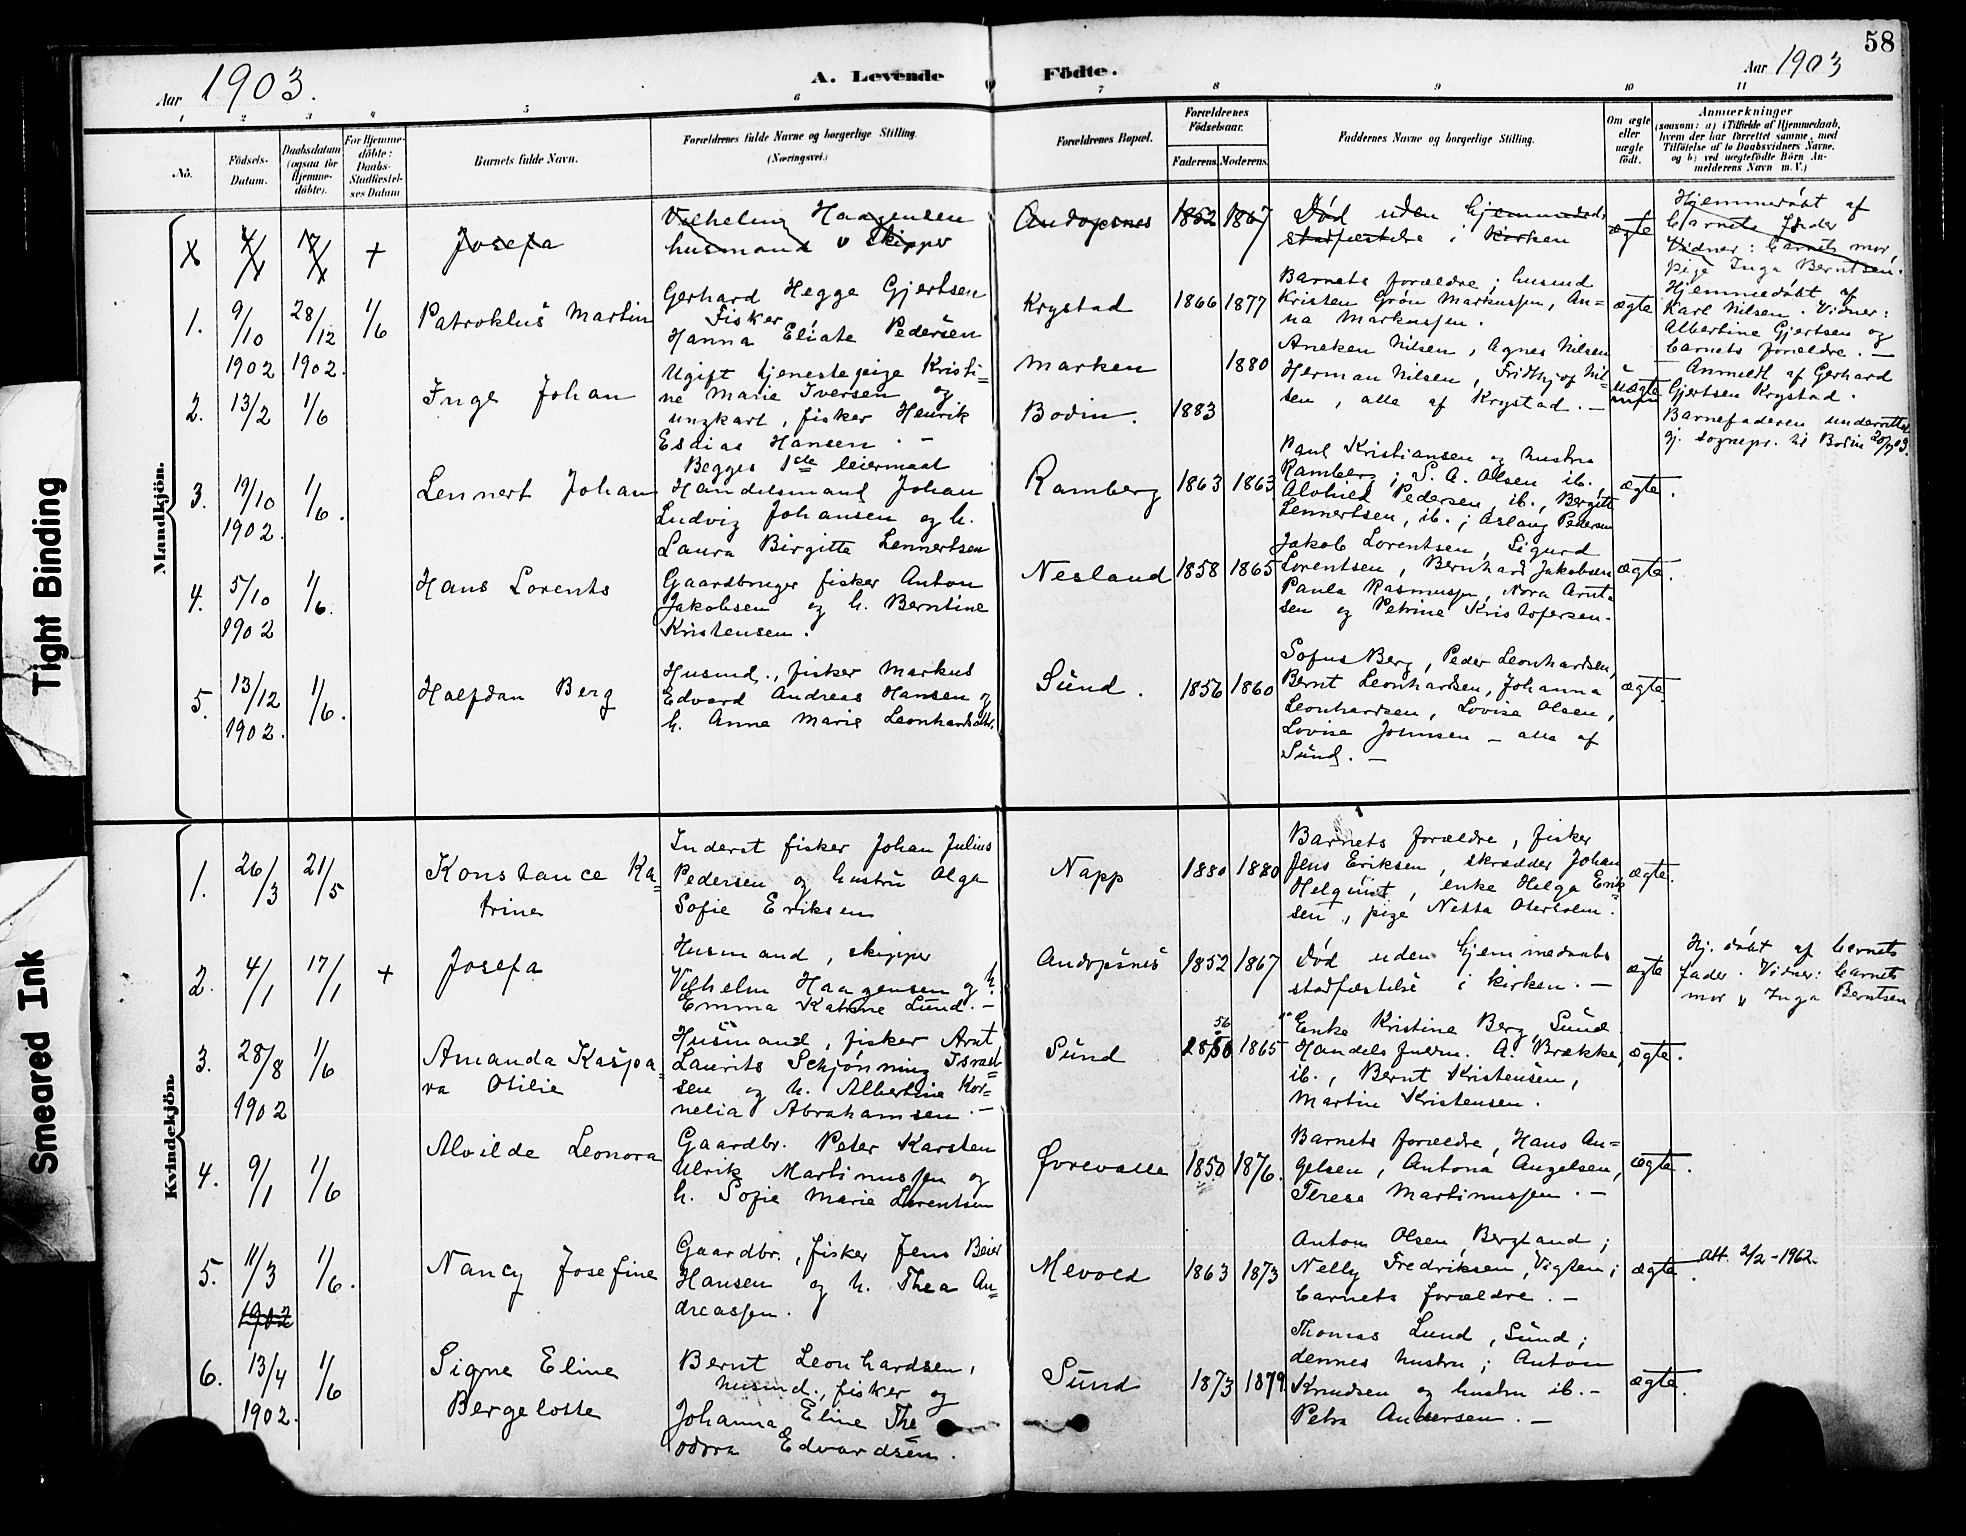 58
Aar 1903.
A. Levende Födte.
Aar 1903
1 2 3 4 5 6 7 8 9 10 11
No.
Födsels-Datum.
Daabsdatum (ogsaa for Hjemme-döbte).
For Hjemme-döbte: Daabs-Stadfæstel-ses Datum
Barnets fulde Navn.
Forældrenes fulde Navne og borgerlige Stilling.
(Næringsvei.)
Forældrenes Bopæl.
Forældrenes Födselsaar.
Faderens. Moderens.
Faddernes Navne og borgerlige Stilling.
Om ægte eller uægte födt.
Anmærkninger
(saasom: a) i Tilfælde af Hjemmedaab,
hvem der har forrettet samme, med
Tilföielse af to Daabsvidners Navne.
og b) ved uægtefödte Börn An-
melderens Navn m. V.)
Mandkjön.
X 4/1 17/1 + Josefa
Vilhelm Haagensen
husmand v skipper
Andopsnes 1852 1867
Död uden hjemmedaabs
stadfæstelse i kirken
ægte
Hjemmedöbt af
barnets fader
Vidner: barnets mor,
pige Inga Berntsen.
1. 9/10 1902 28/12 1902. 1/6 Patroklus Martin
Gerhard Hegge Gjertsen
Fisker
Hanna Eliate Pedersen
Krystad 1866 1877
Barnets forældre; husmd
Kristen Grön Markussen, An-
na Markussen.
ægte
Hjemmedöbt af
Karl Nilsen. Vidner:
Albertine Gjertsen og
barnets forældre. —
2. 13/2 1/6 Inge Johan
Ugift tjenestepige Kristi-
ne Marie Iversen og
ungkarl, fisker Henrik
Esaias Hansen. —
Begges 1ste leiermaal
Marken 1880
Bodin. 1883
Aneken Nilsen, Agnes Nilsen
Herman Nilsen, Fridthjof Nil-
sen, alle af Krystad. —
uægte
Anmeldt af Gerhard
Gjertsen Krystad.
Barnefaderen underrettet
gj. sognepr. til Bodin
3. 19/10 1902. 1/6. Lennert Johan
Handelsmand Johan
Ludvig Johansen og h.
Laura Birgitte Lennertsen
Ramberg 1863 1863
Paul Kristiansen og hustru
Ramberg; S. A. Olsen ib.,
Alvhild Pedersen ib., Bergitte
Lennertsen, ib.; Aslaug Pedersen
ægte.
4. 5/10 1902 1/6. Hans Lorents
Gaardbruger fisker Anton
Jakobsen og h. Berntine
Kristensen.
Nesland 1858 1865
Jakob Lorentsen, Sigurd
Lorentsen, Bernhard Jakobsen
Paula Rasmussen, Nora Arnt-
sen og Petrine Kristofersen.
ægte.
5. 13/12 1902. 1/6. Halfdan Berg
Husmd., fisker Markus
Edvard Andreas Hansen og
h. Anne Marie Leonhardsdtr.
Sund. 1856 1860
Sofus Berg, Peder Leonhardsen,
Bernt Leonhardsen, Johanna
Leonhardsen, Lovise Olsen,
Lovise Johnsen — alle af
Sund. —
ægte.
Kvindekjön.
1. 26/3 21/5 Konstance Ka-
trine
Inderst fisker Johan Julius
Pedersen og hustru Olga
Sofie Eriksen
Napp 1880 1880
Barnets forældre, fisker
Jens Eriksen, skrædder Johan
Helquist, enke Helga Erik
sen, pige Netta Oterholm.
ægte.
2. 4/1 17/1 + Josefa
Husmand, skipper
Vilhelm Haagensen og h.
Emma Katrine Lund. —
Andopsnes 1852 1867
Död uden hjemmedaabs
stadfæstelse i kirken. —
ægte
Hj. döbt af barnets
fader. Vidner: barnets
mor v Inga Berntsen
3. 28/8 1902 1/6 Amanda Kaspa-
ra Otilie
Husmand, fisker Arnt
Laurits Schjønning Israel-
sen og h. Albertine Kor-
nelia Abrahamsen. —
Sund 56 1850 1865
Enke Kristine Berg, Sund
Handelsfuldm. A. Brække,
ib., Bernt Kristensen,
Martin Kristensen.
ægte.
4. 9/1 1/6 Alvilde Leonora
Gaardbr. Peter Karsten
Ulrik Martinussen og
h. Sofie Marie Lorentsen
Ørevalle 1850 1876.
Barnets forældre, Hans An-
gelsen, Antona Angelsen,
Terese Martinussen. —
ægte.
5. 11/3 1902 1/6. Nancy Josefine
Gaardbr., fisker Jens Beier
Hansen og h. Thea An-
dreassen.
Mevold 1863 1873
Anton Olsen, Bergland;
Nelly Fredriksen, Vigten;
barnets forældre. —
ægte.
att. 2/2-1962.
6. 13/4 1902. 1/6 Signe Eline
Bergelotte
Bernt Leonhardsen,
husmd., fisker og
Johanna Eline The
odora Edvardsen.
Sund 1873 1879
Thomas Lund, Sund;
dennes hustru; Anton
Knudsen og hustru ib. —
Petra Andersen. —
ægte.
Tight Binding
Smeared Ink